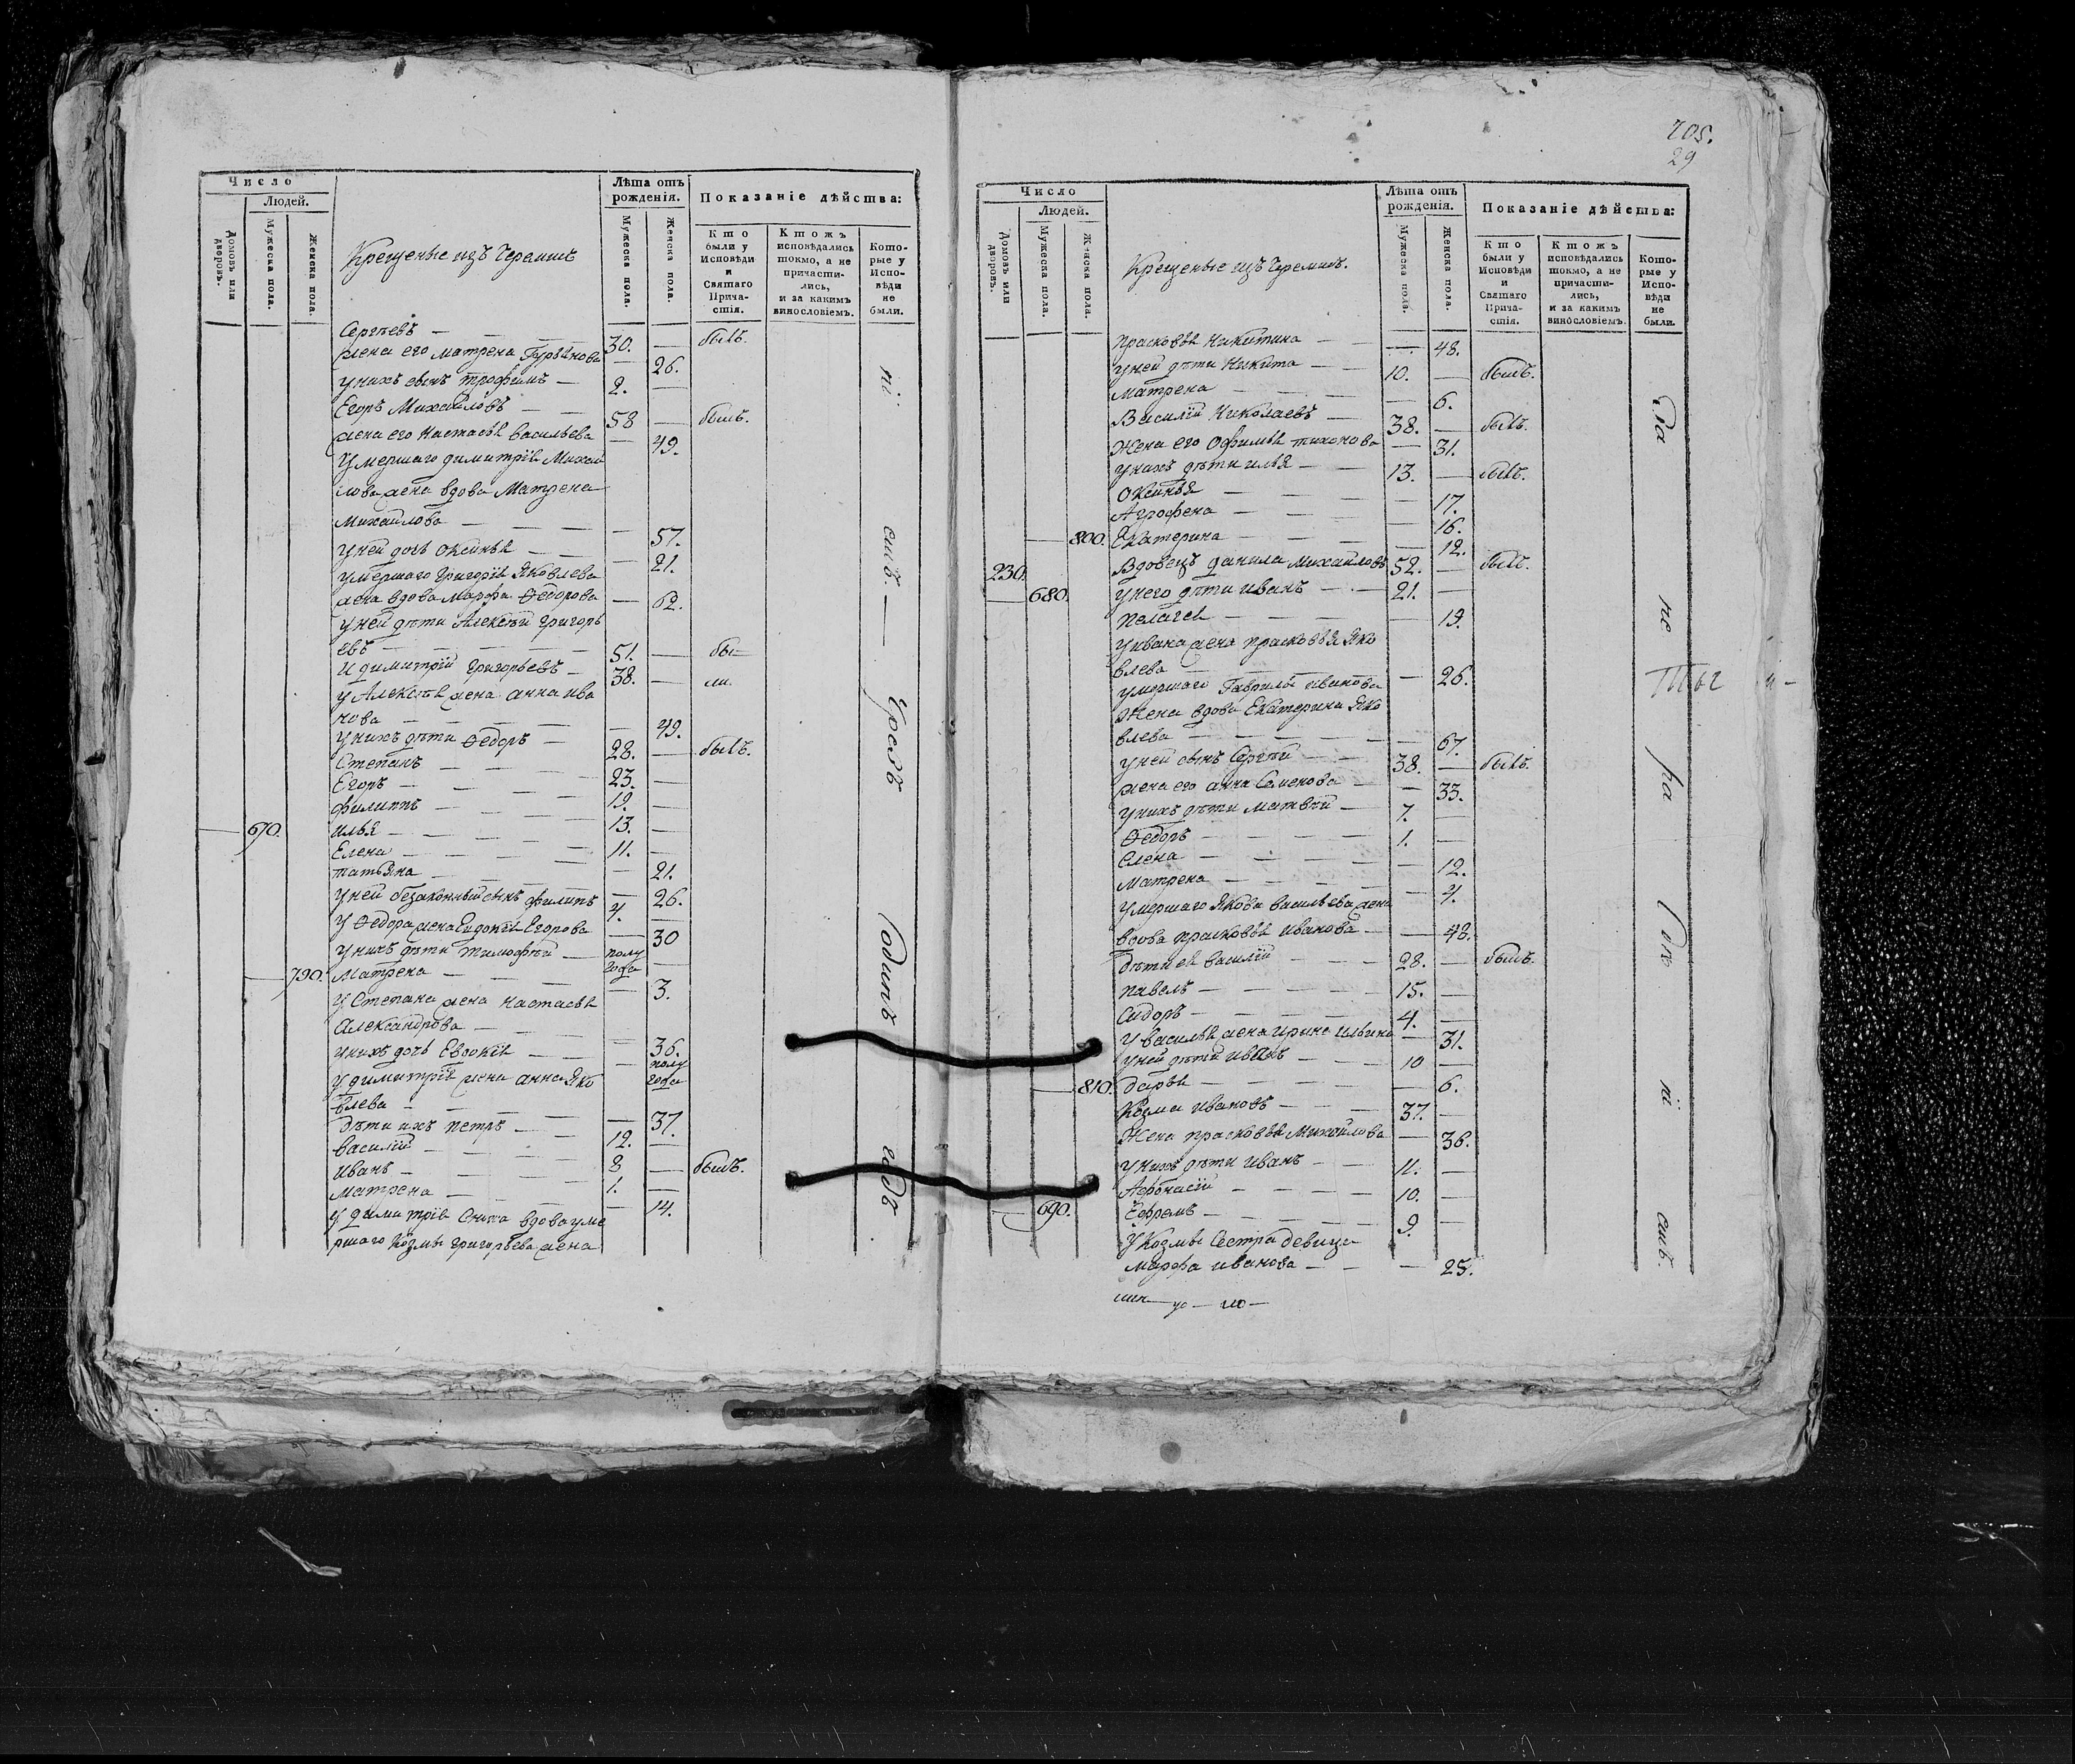 Число
Людей.
Домовъ или дворовъ.
Мужеска пола.
Женска пола.
Крещеные изъ Черемисъ
Лѣта отъ рожденія.
Мужеска пола.
Женска пола.
Показаніе дѣйства:
Кто были у Исповѣди и Святаго Причастія.
Ктожъ исповѣдались токмо, а не причастились, и за какимъ винословіемъ.
Которые у Исповѣди не были.
Сергѣевъ — 30. — былъ.
жена его Матрена — 26.
у нихъ сынъ Трофимъ — 2. —
Егоръ Михайловъ — 58 — былъ.
жена его Настасья Васильева — 49.
Умершаго Димитрія Михай
лова жена вдова Матрена
Михайлова — 57.
у ней дочь Оксинья — 21.
умершаго Григорія Яковлева
жена вдова Марфа Ѳедорова — 62.
у ней дѣти Алексѣй Григорь
евъ — 51. — бы—
и Димитрій Григорьевъ — 38. — ли.
у Алексѣя жена Анна Ива
нова — 49.
у нихъ дѣти Ѳедоръ — 28. — былъ.
Степанъ — 23. —
Егоръ — 19. —
Филиппъ — 13. —
670. Илья — 11. —
Елена — 21.
Татьяна — 26.
у ней беззаконный сынъ Филипъ 4. —
у Ѳедора жена Евдокія Егорова — 30
у нихъ дѣти Тимофѣй — полу года —
790. Матрена — 3.
у Степана жена Настасья
Александрова — 36.
у нихъ дочь Евдокія — полу года
у Димитрія жена Анна Яко
влева — 37.
дѣти ихъ Петръ — 12. —
Василій — 8 — былъ.
Иванъ — 1. —
Матрена — 14.
у Димитрія Сноха вдова уме
ршаго Козмы Григорьева жена
ній
сихъ. —
Уродъ
годинъ
годъ
705.
29
Число
Людей.
Домовъ или дворовъ.
Мужеска пола.
Женска пола.
Крещеные изъ Черемисъ.
Лѣта отъ рожденія.
Мужеска пола.
Женска пола.
Показаніе дѣйства:
Кто были у Исповѣди и Святаго Причастія.
Ктожъ исповѣдались токмо, а не причастились, и за какимъ винословіемъ.
Которые у Исповѣди не были.
Прасковья Никитина — 48.
у ней дѣти Никита — 10. — былъ.
Матрена — 6.
Василій Николаевъ — 38. — былъ.
Жена его Офимья Тихонова — 31.
у нихъ дѣти Илья — 13. — былъ.
Оксинья — 17.
Агрофена — 16.
800. Екатерина — 12.
230. Вдовецъ Данила Михайловъ 52. — былъ.
680. у него дѣти Иванъ — 21. —
Пелагея — 19.
у Ивана жена Прасковья Яко
влева — 26.
умершаго Гаврилы Иванова
Жена вдова Екатерина Яко
влева — 67.
у ней сынъ Сергѣй — 38. — былъ.
жена его Анна Семенова — 33.
у нихъ дѣти Матвѣй — 7. —
Ѳедоръ — 1. —
Елена — 12.
Матрена — 4.
умершаго Якова Васильева жена
вдова Прасковья Иванова — 48.
дѣти ея Василій — 28. — былъ.
Павелъ — 15. —
Сидоръ — 4. —
у Василья жена Ирина Ильина — 31.
у ней дѣти Иванъ — 10 —
810. Дарья — 6.
Козма Ивановъ — 37. —
Жена Прасковья Михайлова — 36.
у нихъ дѣти Иванъ — 11. —
Афонасій — 10. —
690. Ефремъ — 9. —
у Козмы Сестра девица
Марфа Иванова — 25.
За
не
ра
ій
сихъ.